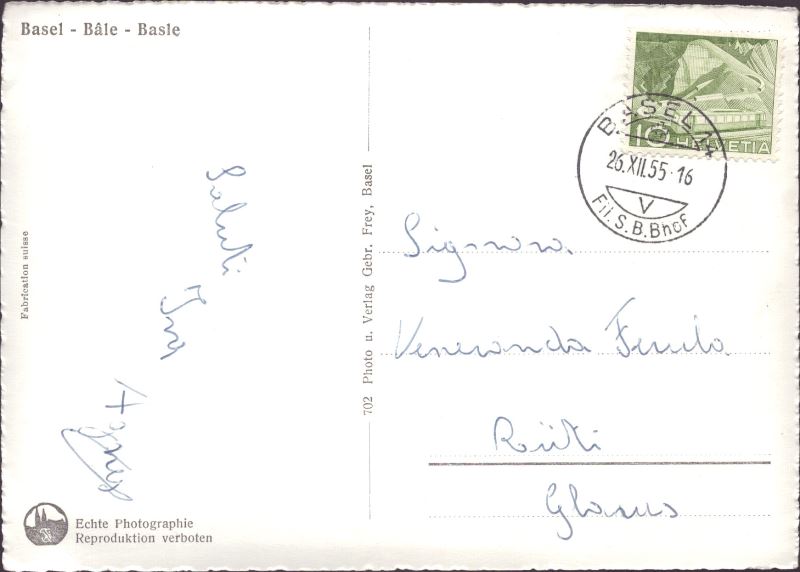 Basel - Bâle - Basle
Fabrication suisse
Saluti
Echte Photographie
Reproduktion verboten
702 Photo u. Verlag Gebr. Frey, Basel
10 HELVETIA
BASEL 14
26.XII.55-16
V
Fil. S.B.Bhof
Signora
Veneranda
Rüti
Glarus